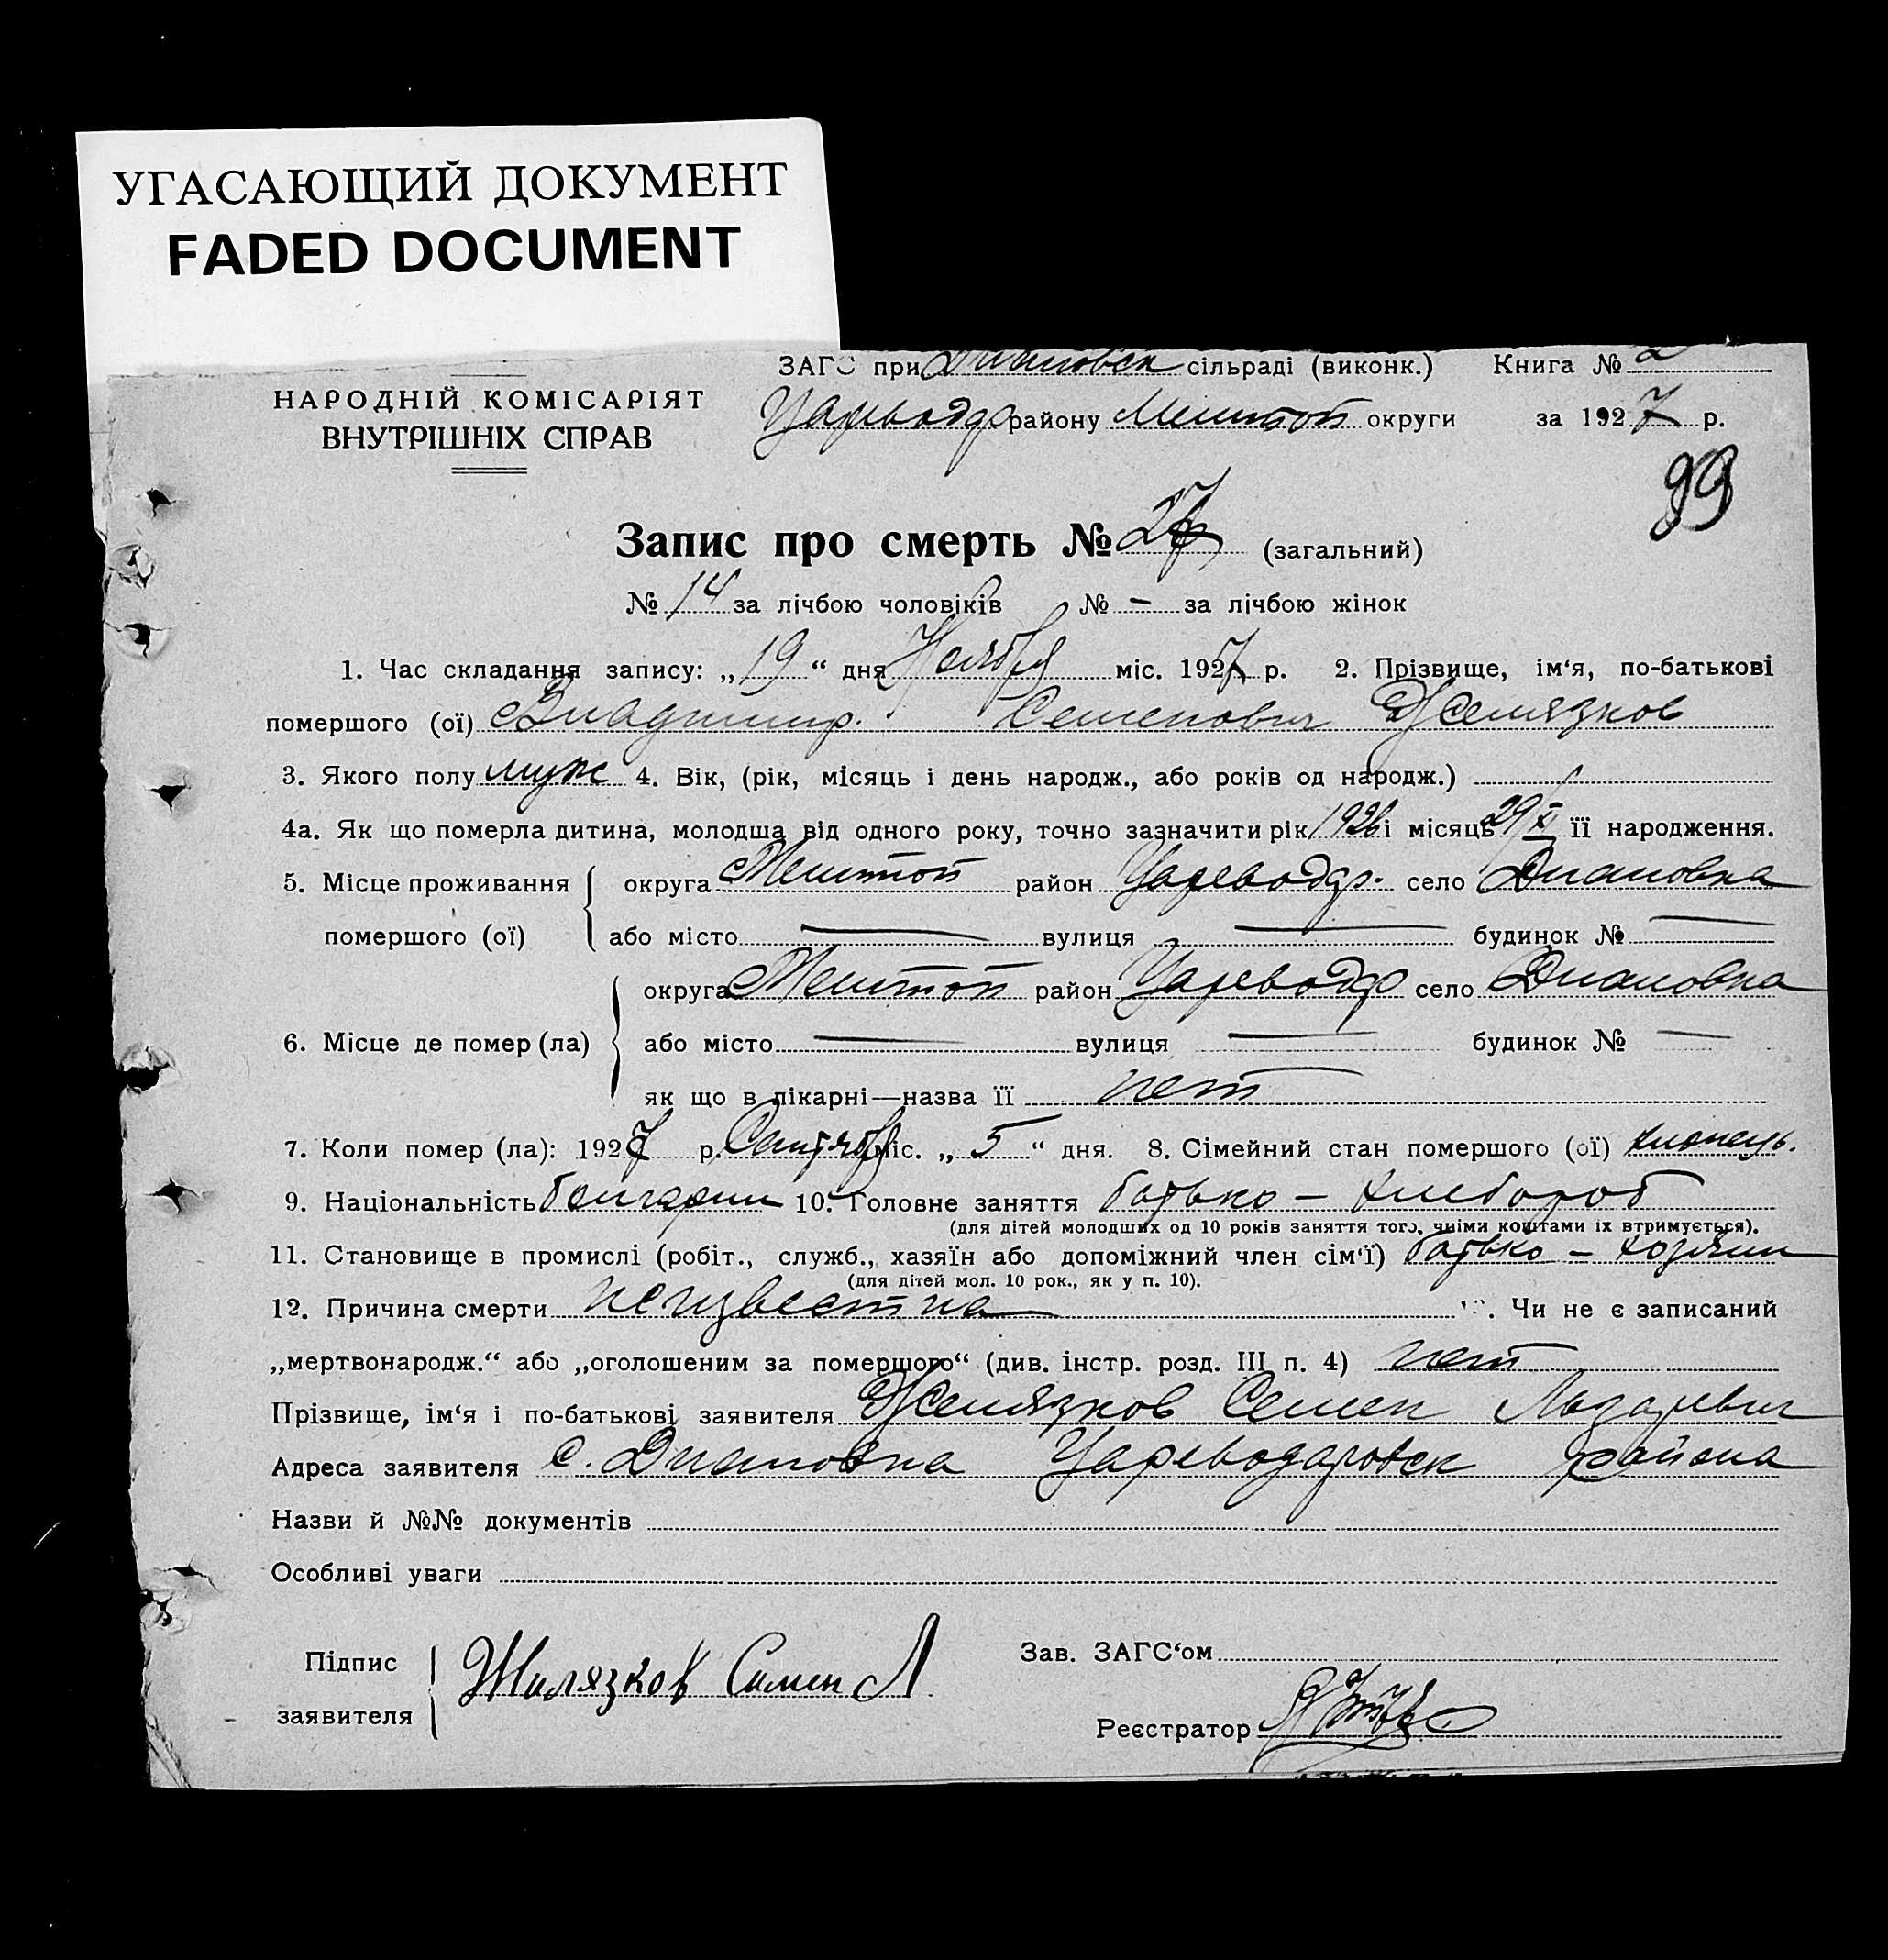 УГАСАЮЩИЙ ДОКУМЕНТ
FADED DOCUMENT
ЗАГС при Диановск сільраді (виконк.) Книга № 2
НАРОДНІЙ КОМІСАРІЯТ
ВНУТРІШНІХ СПРАВ
Царьводар району Мелитоп округи за 1927 р.
99
Запис про смерть № 27 (загальний)
№ 14 за лічбою чоловіків № — за лічбою жінок
1. Час складання запису: „19“ дня Ноября міс. 1927 р. 2. Прізвище, ім‘я, по-батькові
помершого (ої) Владимир Семенович Желязков
3. Якого полу муж 4. Вік, (рік, місяць і день народж., або років од народж.)
4а. Як що померла дитина, молодша від одного року, точно зазначити рік 1926 і місяць 29/XI її народження.
5. Місце проживання округа Мелитоп район Цареводар. село Диановка
помершого (ої) або місто — вулиця — будинок № —
округа Мелитоп район Цареводар село Диановка
6. Місце де помер (ла) або місто — вулиця — будинок № —
як що в лікарні—назва її нет
7. Коли помер (ла): 1927 р. Сентябр міс. „5“ дня. 8. Сімейний стан помершого (ої) хлопець.
9. Національність болгарин 10. Головне заняття батько — хлебороб
(для дітей молодших од 10 років заняття того, чиїми коштами їх втримується).
11. Становище в промислі (робіт., служб., хазяїн або допоміжний член сім‘ї) батько — хозяин
(для дітей мол. 10 рок., як у п. 10).
12. Причина смерти неизвестна . Чи не є записаний
„мертвонародж.“ або „оголошеним за помершого“ (див. інстр. розд. III п. 4) нет
Прізвище, ім‘я і по-батькові заявителя Желязков Семен Лазаревич
Адреса заявителя с. Диановка Цареводаровск района
Назви й №№ документів
Особливі уваги
Підпис
заявителя
Жилязков Симен Л
Зав. ЗАГС‘ом
Реєстратор